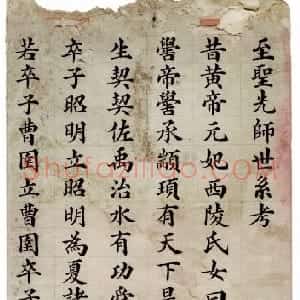 至聖先師世系考
昔黃帝元妃西陵氏女曰
嚳帝嚳承顓頊有天下是
生契契佐禹治水有功受
卒子昭明立昭明為夏諸
若卒子曹圉立曹圉卒子
shufaziliao.com